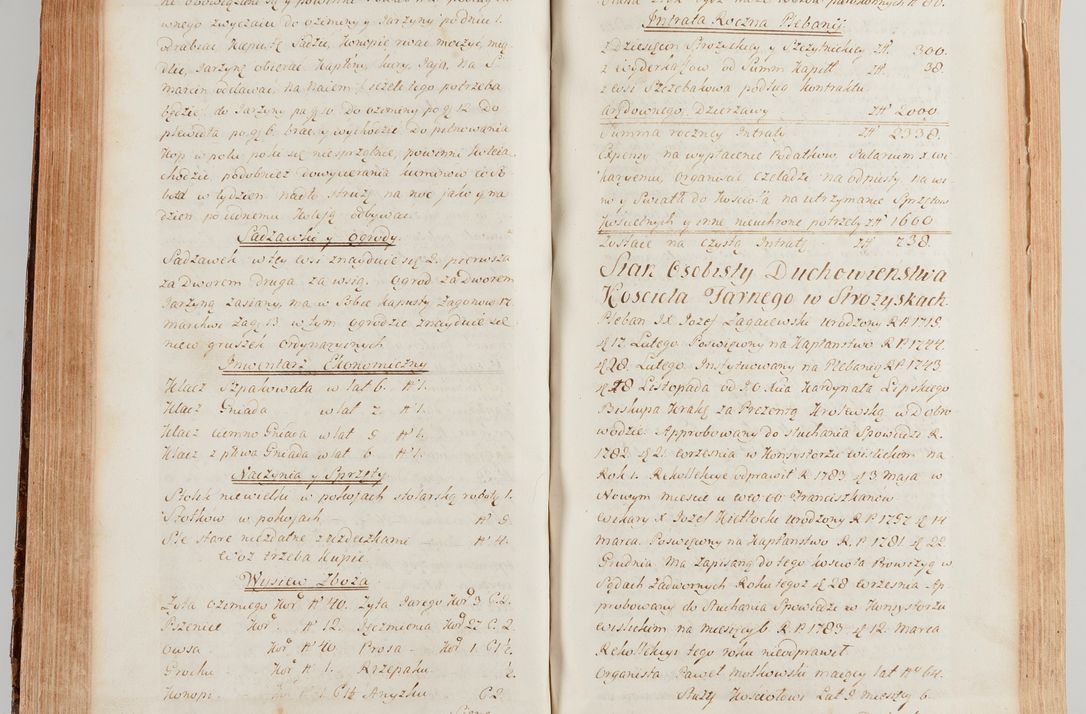 wnego zwyczaiu do ozimeny y Jarzyny podniu 1.
odrabiac Kapustę Sadzić, Konopie rwac moczyć, mię-
dlic, Jarzynę obierac Kapłony, Kury, Jaja, na S.
Marcin oddawac na Naiem jeżeli tego potrzeba
będzie do Jarzyny po g. 10 do ozimeny po g. 12 Do
plewidła po g. 6. brac, y wychodzic do pilnowania
Kop w polu poki się niesprzątnie, powinni Koleią
w tydzien nadto stróżę na noc jako y na
dzien po iednemu Koleją odbywac
Sadzawki y Ogrody.
Sadzawek w tey wsi znayduie się 2. pierwsza
za Dworem druga za wsią. Ogrod za Dworem
Jarzyną zasiany, ma w Sobie kapusty Zagonow 17.
Marchwi Zag. 13 w tym ogrodzie znayduie się
niew gruszek Ordynaryinych
Inwentarz Ekonomiczny
Klacz Szpakowata w lat 6. N 1.
Klacz Gniada w lat 7. N 1.
Klacz ciemno Gniada w lat 9 N 1.
Klacz z płowa Gniada w lat 6. N 1.
Naczynia y Sprzęty
Stolik niewielki w pokojach stolarską robotą 1.
Stołkow w pokojach N 9.
Pie stare niezdatne N 4.
Woz trzeba Kupic
Wysiew Zboża
Zyta Ozimego Kor N 40. Zyta Jarego Kor 3 C. 2.
Pszenice Kor. N 12. Jęczmienia Kor 27 C. 2.
Owsa Kor N 40 Prosa Kor 1. C 1½
Grochu Kor N 1. Rzepaku ½.
Konopi C 1½ Anyżku C 2.
Intrata Roczna Plebanij
z Dziesięcin Strożyskiey y Szczytnickiey zł. 300.
z Wyderkafow od Summ Kapitł zł. 38.
z Wsi Szczebakowa podług Kontraktu
Arędownego Dzierżawy zł 2000
Summa roczney Intraty zł 2338.
Expensy na wypłacenie Podatkow, Salarium X. Wi-
karyemu, Organiscie Czeladzi na odpusty na wi-
no y Swiatło do Kościoła na utrzymanie Sprzętow
Kościelnych y inne nieuchronne potrzeby zł 1660
Zostaie na czystą Intratę zł 738.
Stan Osobisty Duchowieństwa
Kościoła Farnego w Strożyskach
Pleban JX. Jozef Zagaiewski urodzony R. P. 1719.
d 17. Lutego. Poswięcony na Kapłanstwo R. P. 1744.
d 28. Lutego. Instytuowany na Plebanię R. P. 1743
d 28 Listopada od J. O. Xcia Kardynała Lipskiego
Biskupa Krakg za Prezentą Krolewską w Dobro-
wodzie. Approbowany do słuchania Spowiedzi R.
1782. d 21. Wrzesnia w Konsystorzu Wislickim na
Rok 1. Rekollekcye odprawił R. 1783 d 3 Maja w
Nowym miescie u WW OO Franciszkanow
Wikary X. Jozef Kietłocki urodzony R. P. 1757 d 14
Marca. Poswięcony na Kapłanstwo R. P. 1781. d 22.
Grudnia Ma Zapisaną do tego Kościoła Prowizyą w
Sądach Zadwornych Roku tegoż d 28 Wrzesnia. Ap-
probowany do Słuchania Spowiedzi w Konsystorzu
Wislickim na Miesięcy 6. R. P. 1783 d 12. Marca
Rekollekcyi tego roku nieodprawił
Organista Paweł Mołkowski maiący lat N 64.
Służy Kościołowi Lat 9 miesięcy 6.